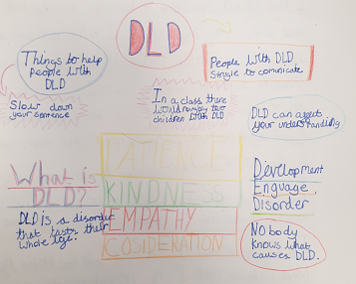 DLD
Things to help
people with
DLD
People with DLD
strugle to comunicate
Slow down
your sentence
In a class there
would roughly two
children with DLD
DLD can affect
your understanding
PATIENCE
What is
DLD?
KINDNESS
EMPATHY
COSIDERATION
DLD is a disorder
that lasts their
whole life.
Development
Enguage
Disorder
NObody
knows what
causes DLD.